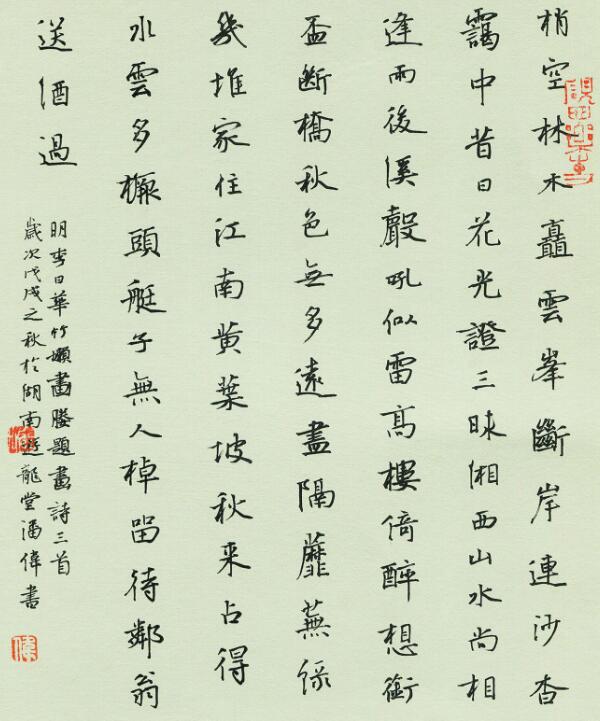 梢空林木矗雲峯斷岸連沙杳
靄中昔日花光證三昧湘西山水尚相
逢雨後溪聲吼似雷高樓倚醉想銜
盃斷橋秋色無多遠盡隔蘼蕪綠
幾堆家住江南黄葉坡秋来占得
水雲多橛頭艇子無人棹留待鄰翁
送酒過
明李日華竹嬾畫媵題畫詩三首
歲次戊戌之秋於湖南龍堂潘偉書
偉